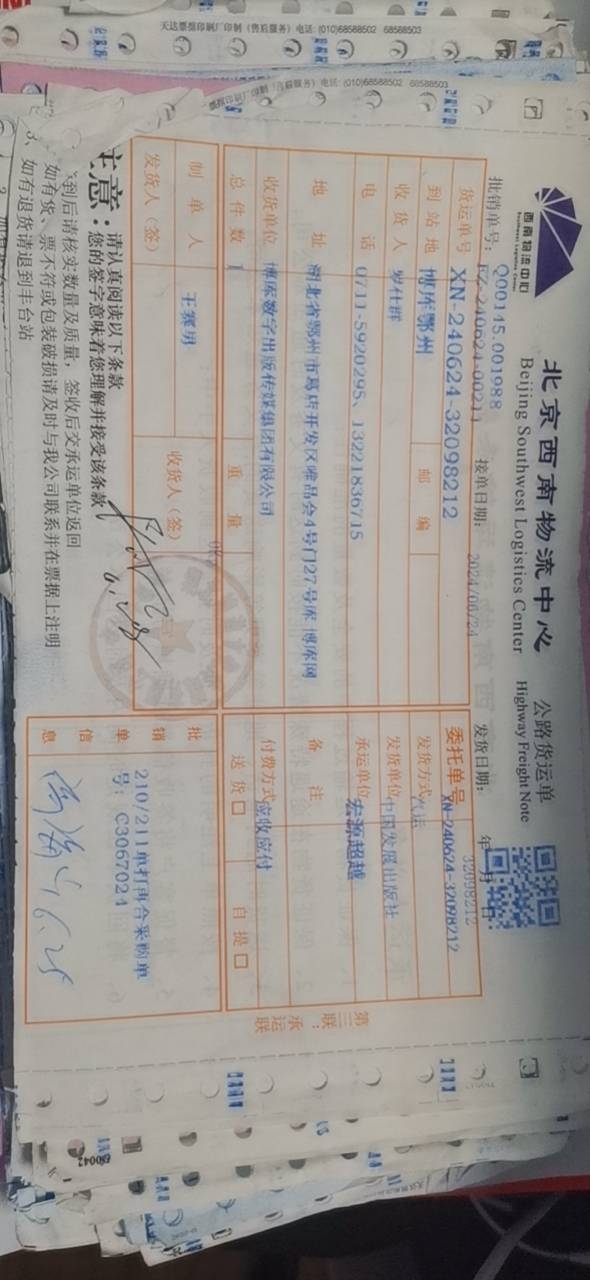 天达票据印刷厂印制(售后服务)电话:(010)68588502 68588503
电话:(010)68588502 68588503
西南物流中心
Southwest Logistics Center
北京西南物流中心 公路货运单
Beijing Southwest Logistics Center Highway Freight Note
批销单号: Q00145.001988
接单日期: 2024/06/24 发货日期: 年 月 日
32098212
货运单号 XN-240624-32098212 委托单号 XN-240624-32098212
到站地 博库鄂州 邮编 发货方式 汽运
收货人 罗仕群 发货单位 中国发展出版社
电话 0711-5920295、13221836715 承运单位 宏源超越
地址 湖北省鄂州市葛店开发区唯品会4号门27号库 博库网 备注
收货单位 博库数字出版传媒集团有限公司 付费方式 应收应付
总件数 1 重量 送货□ 自提□
制单人 王赛男 收货人(签)
发货人(签)
批销单信息
210/211单打再合采购单
号: C3067024
6.28
第三联:承运联
注意:请认真阅读以下条款
您的签字意味着您理解并接受该条款
到后请核实数量及质量,签收后交承运单位返回
如有货、票不符或包装破损请及时与我公司联系并在票据上注明
3、如有退货请退到丰台站